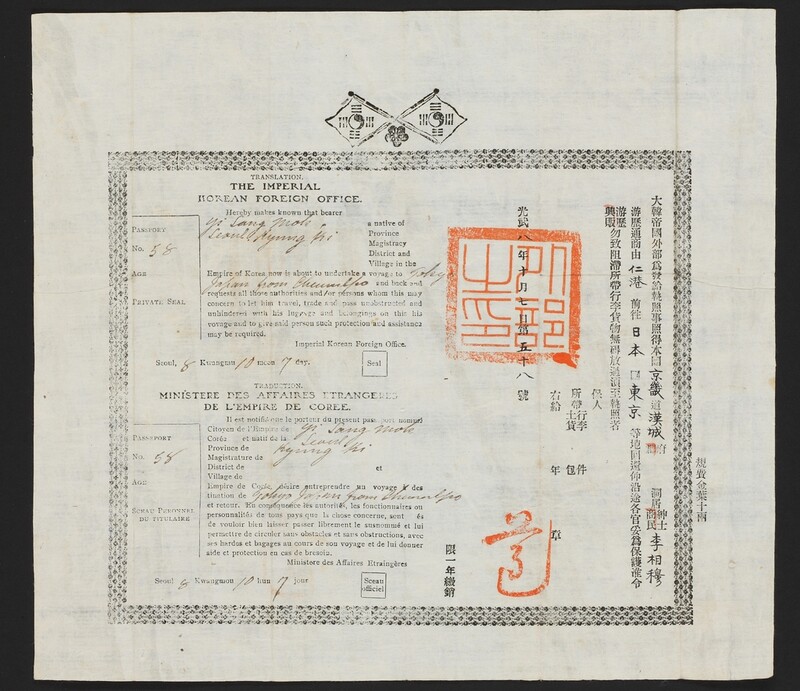 大韓帝國外部爲發給執照事照得本國京畿道漢城府 洞居紳士商民李相穆
游歷通商由仁港前往日本國東京等地回還仰沿途各官妥爲保護准令
游歷勿致阻滯所帶行李貨物無碍放過湏至執照者
保人
所帶行李 件
土貨 包
右給 年 章
光武八年十月七日第五十八號
限一年繳銷
規費金葉十兩
TRANSLATION.
THE IMPERIAL
KOREAN FOREIGN OFFICE.
Hereby makes known that bearer
Yi Sang Mok, a native of
Seoul Kyung Ki Province
Magistracy
District and
Village in the
PASSPORT
No. 58
AGE
PRIVATE SEAL
Empire of Korea now is about to undertake a voyage to Tokyo
Japan from Chemulpo and back and
requests all those authorities and/or persons whom this may
concern to let him travel, trade and pass unobstructed and
unhindered with his luggage and belongings on this his
voyage and to give said person such protection and assistance
may be required.
Imperial Korean Foreign Office.
Seoul, 8 Kwangmu 10 moon 7 day.
Seal
TRADUCTION.
MINISTERE DES AFFAIRES ETRANGERES
DE L'EMPIRE DE COREE.
Il est notifié que le porteur du présent passeport nommé
Citoyen de l'Empire de Yi Sang Mok
Corée et natif de la Seoul
Province de Kyung Ki
Magistrature de
District de et
Village de
PASSSPORT
No. 58
AGE
SCEAU PERSONNEL
DU TITULAIRE
Empire de Corée désire entreprendre un voyage à des
tination de Tokyo Japan from Chemulpo
et retour. En conséquence les autorités, les fonctionnaires ou
personnalités de tous pays que la chose concerne, sont és
de vouloir bien laisser passer librement le susnommé et lui
permettre de circuler sans obstacles et sans obstructions, avec
ses hardes et bagages au cours de son voyage et de lui donner
aide et protection en cas de besoin.
Ministere des Affaires Etrangères
Seoul 8 Kwangmou 10 lune 7 jour
Sceau
officiel